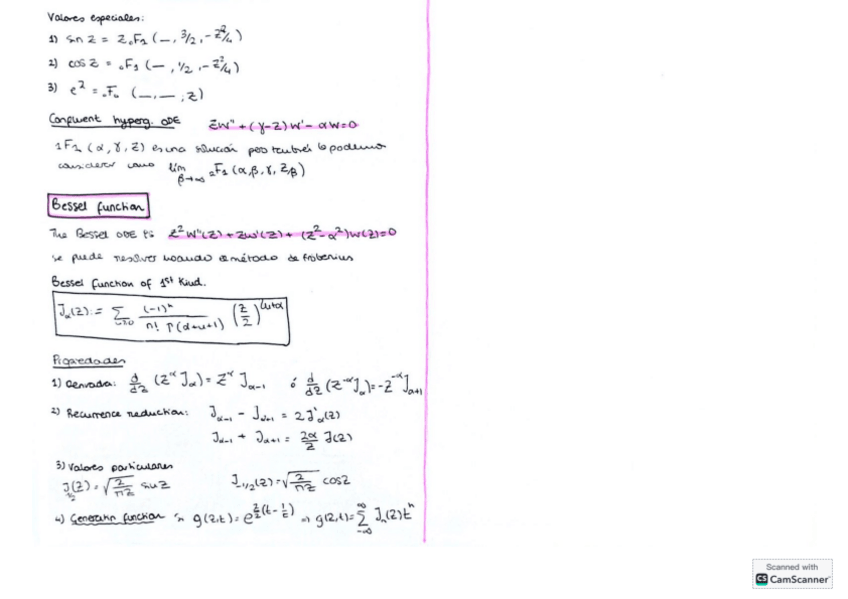 Valores especiales:
1) sin z = z ₀F₁ (—, 3/2, -z²/4)
2) cos z = ₀F₁ (—, 1/2, -z²/4)
3) e^z = ₀F₀ (—, —, z)
Confluent hyperg. ODE zw'' + (γ-z)w' - αw = 0
₁F₁ (α, γ, z) es una solución pero también lo podemos
considerar como lim β→∞ ₂F₁ (α, β, γ, z/β)
Bessel function
The Bessel ODE is z²w''(z) + zw'(z) + (z²-α²)w(z) = 0
se puede resolver usando el método de frobenius
Bessel function of 1st Kind.
J_α(z) := Σ_{n≥0} (-1)^n / (n! Γ(α+n+1)) (z/2)^{2n+α}
Propiedades
1) Derivada: d/dz (z^α J_α) = z^α J_{α-1} ó d/dz (z^{-α} J_α) = -z^{-α} J_{α+1}
2) Recurrence reduction: J_{α-1} - J_{α+1} = 2J'_α(z)
J_{α-1} + J_{α+1} = 2α/z J(z)
3) Valores particulares
J_{1/2}(z) = √(2/πz) sin z J_{-1/2}(z) = √(2/πz) cos z
4) Generatin function g(z,t) = e^{z/2(t - 1/t)} ⇒ g(z,t) = Σ_{-∞}^{∞} J_n(z) t^n
Scanned with
CS CamScanner